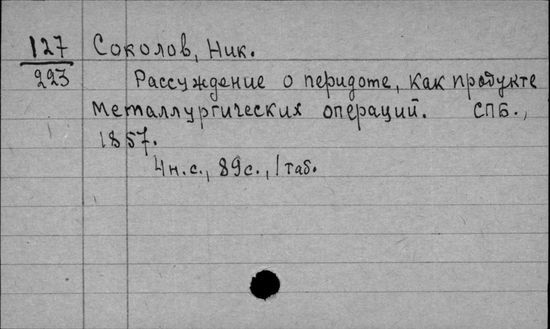 127 Соколов, Ник.
223
Рассуждение о перидоте, как продукте
металлургических операций. СПБ.,
1857.
4н.с., 89с., 1 таб.